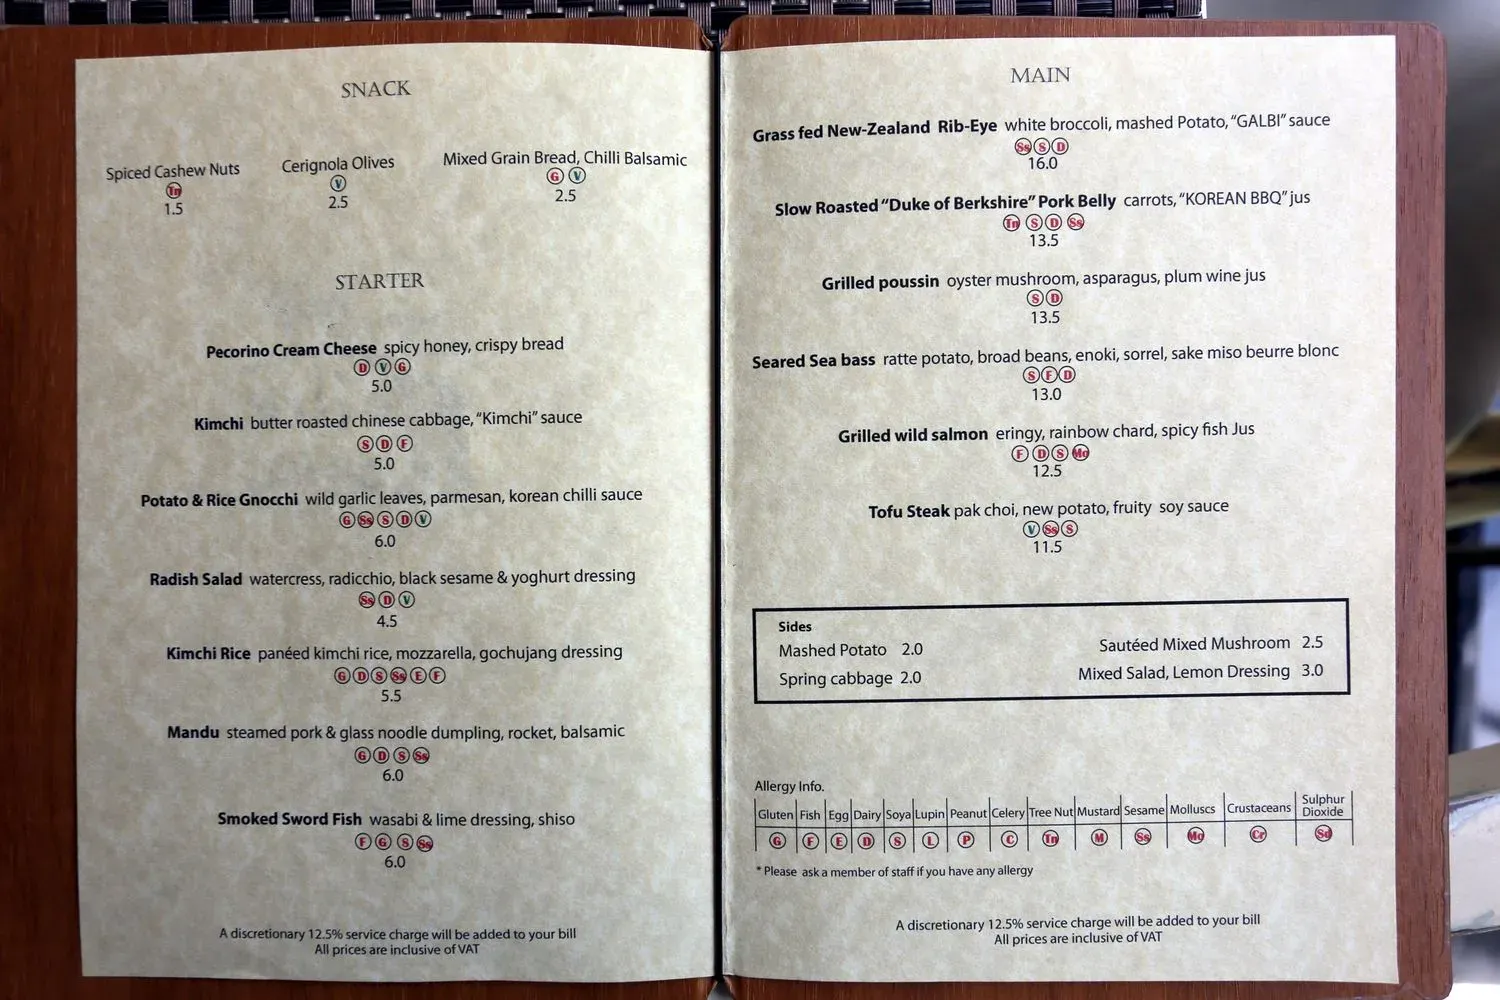 SNACK
Spiced Cashew Nuts
Tn
1.5
Cerignola Olives
V
2.5
Mixed Grain Bread, Chilli Balsamic
G V
2.5
STARTER
Pecorino Cream Cheese spicy honey, crispy bread
D V G
5.0
Kimchi butter roasted chinese cabbage, "Kimchi" sauce
S D F
5.0
Potato & Rice Gnocchi wild garlic leaves, parmesan, korean chilli sauce
G Ss S D V
6.0
Radish Salad watercress, radicchio, black sesame & yoghurt dressing
Ss D V
4.5
Kimchi Rice panéed kimchi rice, mozzarella, gochujang dressing
G D S Ss E F
5.5
Mandu steamed pork & glass noodle dumpling, rocket, balsamic
G D S Ss
6.0
Smoked Sword Fish wasabi & lime dressing, shiso
F G S Ss
6.0
A discretionary 12.5% service charge will be added to your bill
All prices are inclusive of VAT
MAIN
Grass fed New-Zealand Rib-Eye white broccoli, mashed Potato, "GALBI" sauce
Ss S D
16.0
Slow Roasted "Duke of Berkshire" Pork Belly carrots, "KOREAN BBQ" jus
Tn S D Ss
13.5
Grilled poussin oyster mushroom, asparagus, plum wine jus
S D
13.5
Seared Sea bass ratte potato, broad beans, enoki, sorrel, sake miso beurre blonc
S F D
13.0
Grilled wild salmon eringy, rainbow chard, spicy fish Jus
F D S Mo
12.5
Tofu Steak pak choi, new potato, fruity soy sauce
V Ss S
11.5
Sides
Mashed Potato 2.0
Sautéed Mixed Mushroom 2.5
Spring cabbage 2.0
Mixed Salad, Lemon Dressing 3.0
Allergy Info.
Gluten Fish Egg Dairy Soya Lupin Peanut Celery Tree Nut Mustard Sesame Molluscs Crustaceans Sulphur Dioxide
G F E D S L P C Tn M Ss Mo Cr Sd
* Please ask a member of staff if you have any allergy
A discretionary 12.5% service charge will be added to your bill
All prices are inclusive of VAT